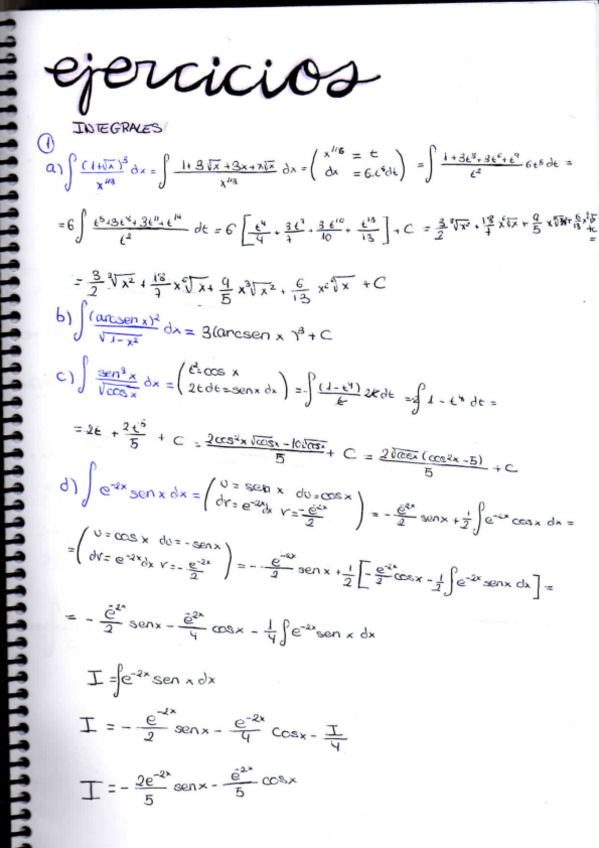 ejercicios
INTEGRALES
①
a) ∫ (1+√x)³/x^(1/3) dx = ∫ (1+3√x+3x+x√x)/x^(1/3) dx = (x^(1/6) = t dx = 6t⁵dt) = ∫ (1+3t³+3t⁶+t⁹)/t² 6t⁵dt =
= 6∫ (t⁵+3t⁸+3t¹¹+t¹⁴)/t² dt = 6 [t⁴/4 + 3t⁷/7 + 3t¹⁰/10 + t¹³/13] + C =
= 3/2 ∛x² + 18/7 x ⁶√x + 9/5 x ∛x² + 6/13 x² ⁶√x + C
b) ∫ (arcsen x)²/√(1-x²) dx = 3(arcsen x)³ + C
c) ∫ sen³x/√cosx dx = (t²=cos x 2tdt=senx dx) = -∫ (1-t⁴)/t 2t dt = -2∫ 1-t⁴ dt =
= -2t + 2t⁵/5 + C = (2cos²x√cosx - 10√cosx)/5 + C = 2√cosx (cos²x-5)/5 + C
d) ∫ e^(-2x) sen x dx = (u = sen x du=cosx dv=e^(-2x)dx v=-e^(-2x)/2) = -e^(-2x)/2 senx + 1/2 ∫ e^(-2x) cosx dx =
= (u=cos x du=-senx dv=e^(-2x)dx v=-e^(-2x)/2) = -e^(-2x)/2 sen x + 1/2 [-e^(-2x)/2 cosx - 1/2 ∫ e^(-2x) senx dx] =
= -e^(-2x)/2 senx - e^(-2x)/4 cosx - 1/4 ∫ e^(-2x) sen x dx
I = ∫ e^(-2x) sen x dx
I = -e^(-2x)/2 senx - e^(-2x)/4 cosx - I/4
I = -2e^(-2x)/5 senx - e^(-2x)/5 cosx